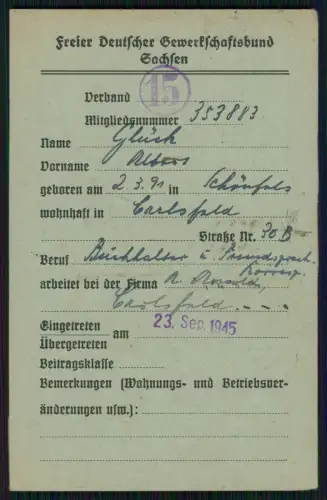 Freier Deutscher Gewerkschaftsbund
Sachsen
15
Verband
Mitgliedsnummer 353883
Name Glück
Vorname Albert
geboren am 2.3.91 in Schönfels
wohnhaft in Carlsfeld
Straße Nr. 30 B
Beruf Buchhalter u. Fremdsprach.
arbeitet bei der Firma
Carlsfeld.
Eingetreten
Übergetreten am 23. Sep. 1945
Beitragsklasse
Bemerkungen (Wohnungs- und Betriebsver-
änderungen usw.):